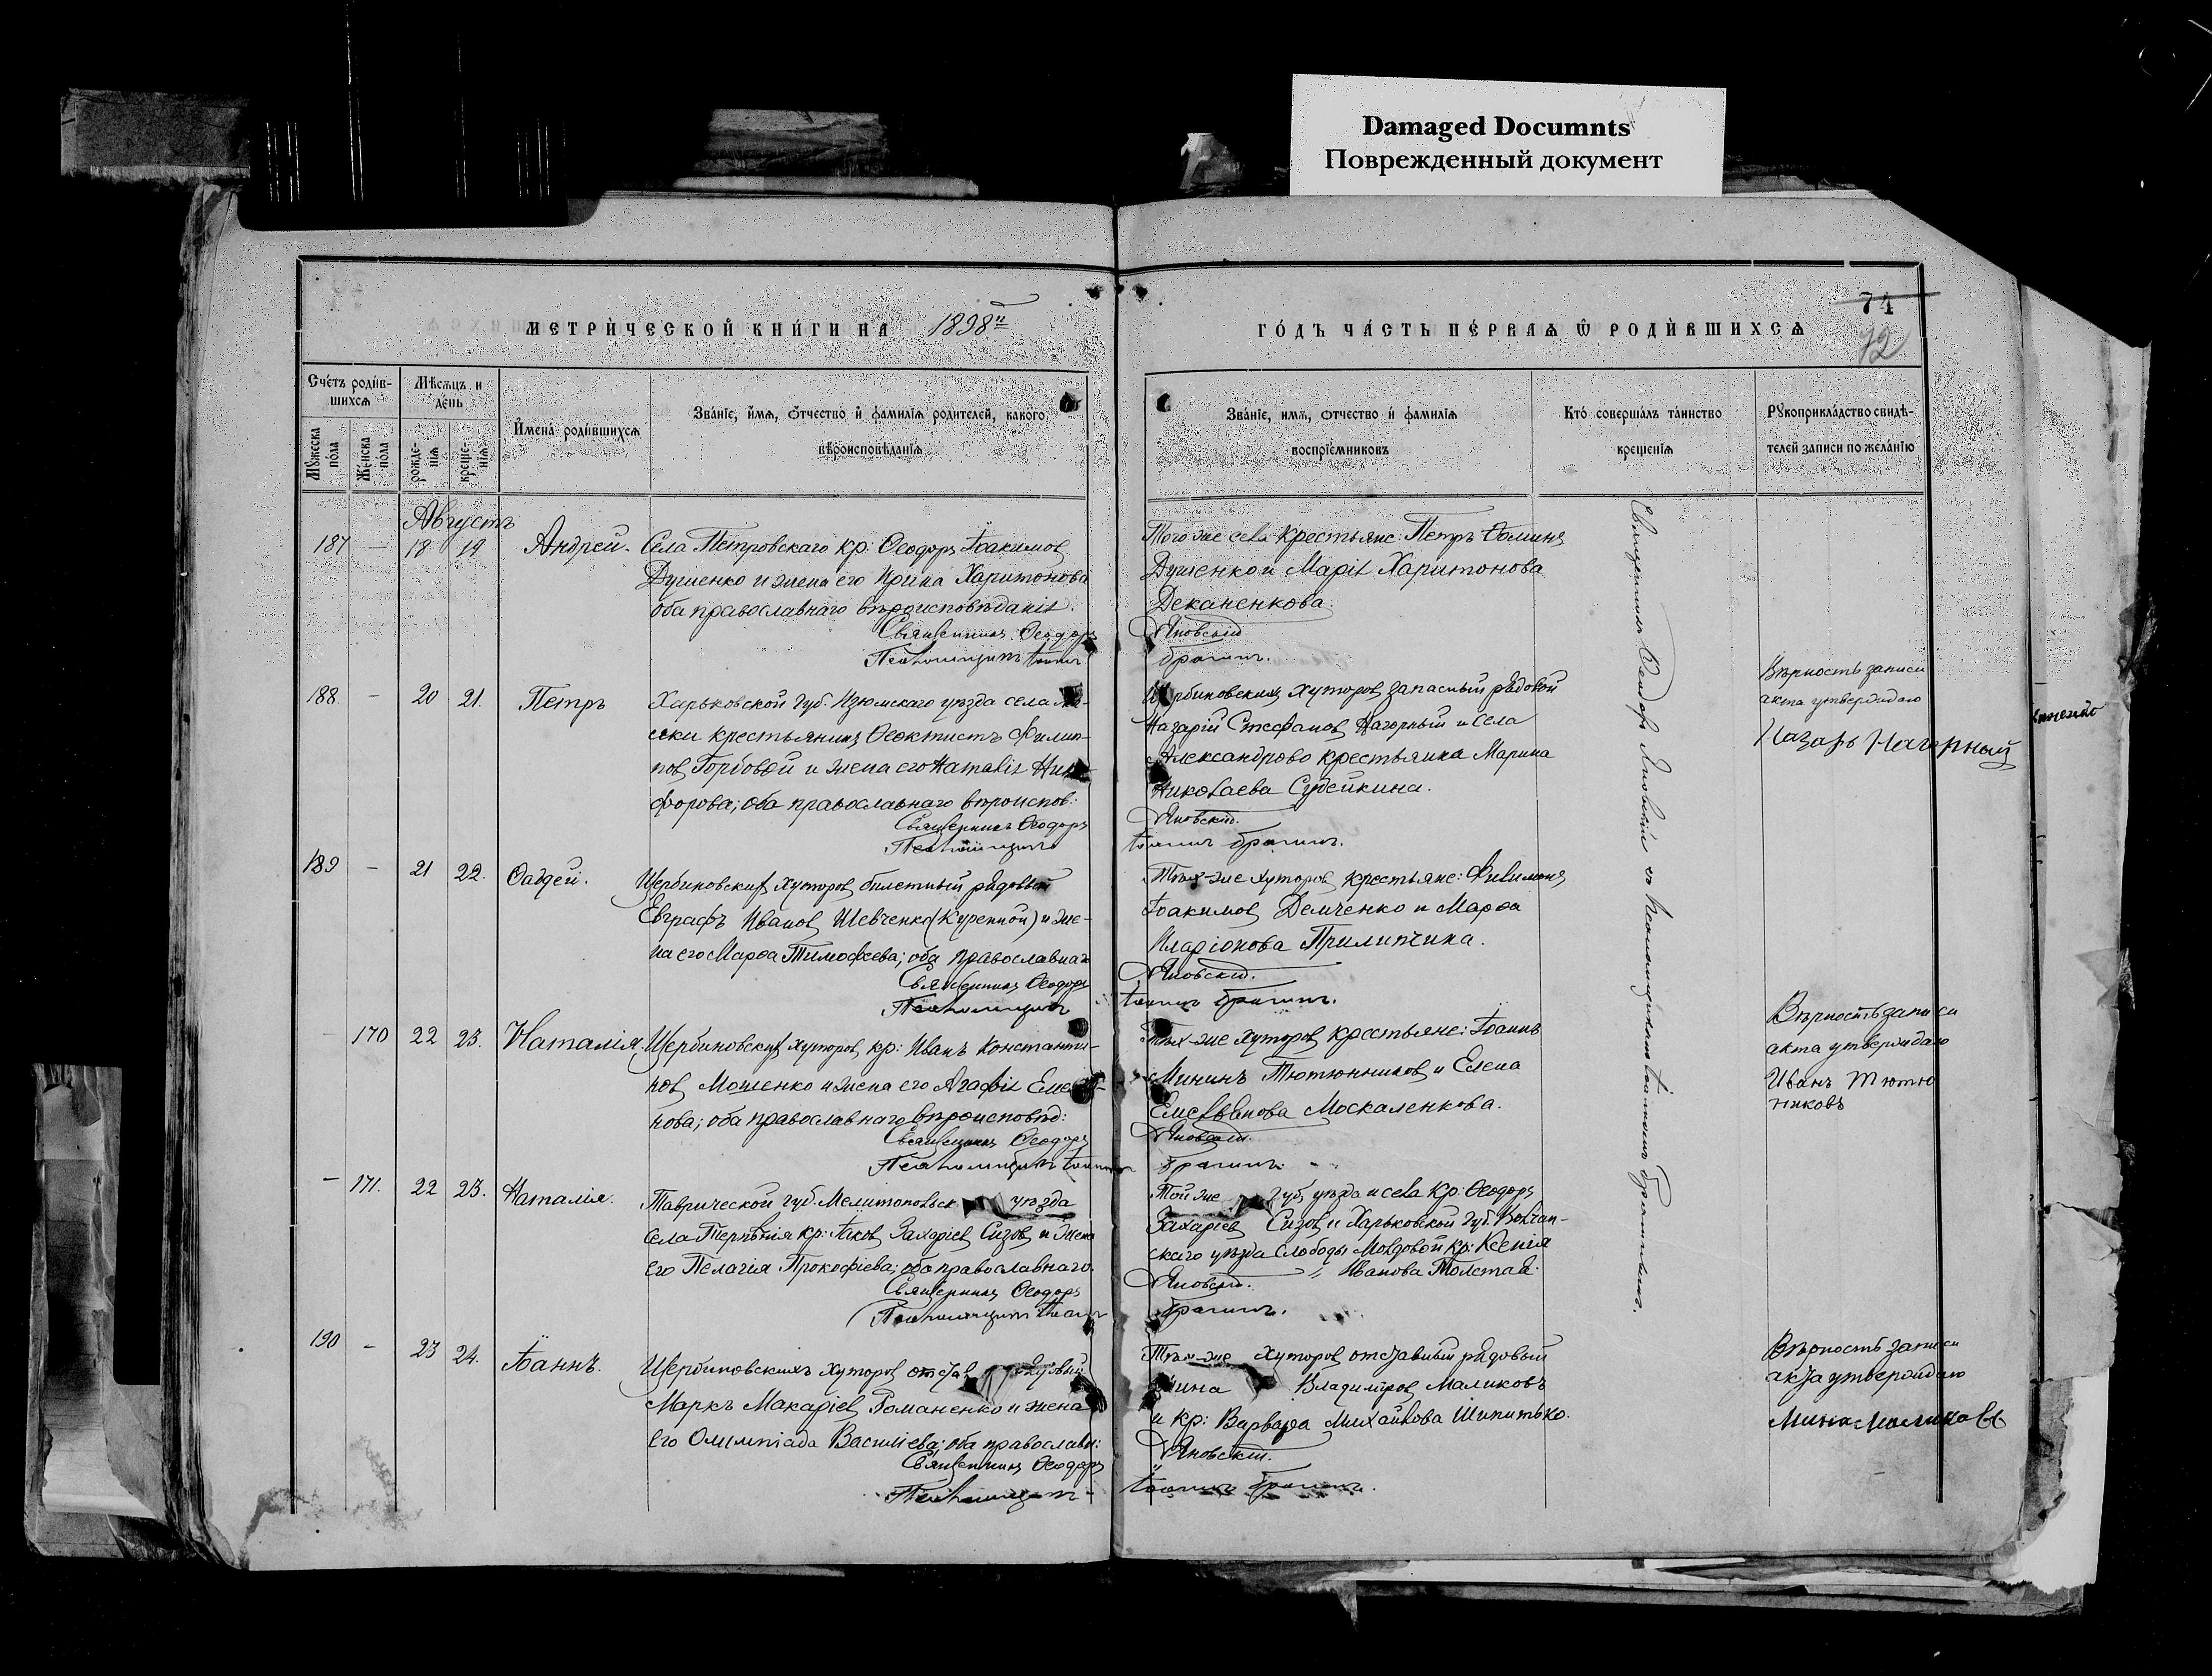 Damaged Documnts
Поврежденный документ
74
72
МЕТРИ́ЧЕСКОЙ КНИ́ГИ НА 1898й
ГО́ДЪ ЧА́СТЬ ПЕ́РВАѦ Ѿ РОДИ́ВШИХСѦ
Сче́тъ роди́в-
шихсѧ
Мѣ́сѧцъ и
де́нь
Мꙋ́жеска
по́ла
Же́нска
по́ла
рожде-
нїѧ
креще-
нїѧ
И́мена́ роди́вшихсѧ
Зва́нїе, и́мѧ, ѻ́тчество и фами́лїѧ роди́телей, како́го
вѣроисповѣ́данїѧ
Зва́нїе, и́мѧ, ѻ́тчество и фами́лїѧ
воспрїе́мниковъ
Кто́ соверша́лъ та́инство
креще́нїѧ
Рꙋкоприкла́дство свидѣ́-
телей за́писи по жела́нїю
Августъ
187 — 18 19 Андрей.
Села Петровскаго кр: Ѳеодоръ Іоакимов
Душенко и жена его Ирина Харитонова
оба православнаго вѣроисповѣданія.
Священникъ Ѳеодоръ
Того же села крестьяне: Петръ Ѳоминъ
Душенко и Марія Харитонова
Деканенкова.
Яновскій
188 — 20 21. Петръ
Харьковской губ. Изюмскаго уѣзда села
крестьянинъ Ѳеоктистъ Филип-
пов Горбовой и жена его Наталія Ники-
форова; оба православнаго вѣроиспов:
Священникъ Ѳеодоръ
Щербиновскихъ хуторов запасный рядовой
Назарій Стефанов Нагорный и села
Александрово крестьянка Марина
Николаева Судейкина.
Яновскій.
Вѣрность записи
акта утверждаю
Назаръ Нагорный
189 — 21 22. Ѳаддей.
Щербиновских хуторов билетный рядовый
Евграфъ Иванов Шевченко (Куренной) и же-
на его Марѳа Тимофеева; оба православнаго
Священникъ Ѳеодоръ
Тѣхъ-же хуторов крестьяне: Филимонъ
Іоакимов Демченко и Марѳа
Иларіонова Прилипчина.
Яновскій.
— 170 22 23. Наталія.
Щербиновских хуторов кр: Иванъ Константи-
нов Мошенко и жена его Агафія Емелья-
нова; оба православнаго вѣроисповѣд:
Священникъ Ѳеодоръ
Тѣхъ-же хуторов крестьяне: Іоаннъ
Мининъ Тютюнников и Елена
Емельянова Москаленкова.
Яновскій.
Вѣрность записи
акта утверждаю
Иванъ Тютю
никовъ
— 171. 22 23. Наталія.
Таврической губ. Мелитопольск уѣзда
села Терпѣнія кр: Іаков Захаріев Сизов и жена
его Пелагія Прокофіева; оба православнаго.
Священникъ Ѳеодоръ
Той же губ, уѣзда и села кр: Ѳеодоръ
Захаріев Сизов и Харьковской губ. Волчан-
скаго уѣзда слободы Молдовой кр: Ксенія
Иванова Толстая.
Яновскій.
190 — 23 24. Іоаннъ.
Щербиновскихъ хуторов отстав рядовый
Маркъ Макаріев Романенко и жена
его Олимпіада Васильева; оба православн:
Священникъ Ѳеодоръ
Тѣхъ-же хуторов отставный рядовый
Мина Владиміров Маликовъ
и кр: Варвара Михайлова Шипитько.
Яновскій.
Вѣрность записи
акта утверждаю
Мина Маликовъ